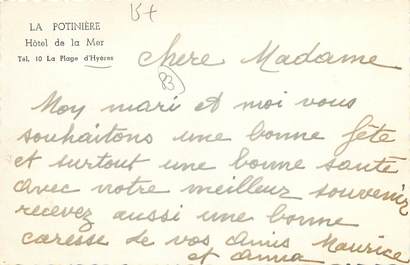 LA POTINIÈRE
Hôtel de la Mer
Tél. 10 La Plage d'Hyères
15+
83
chere Madame
Moy mari et moi vous
souhaitons une bonne fête
et surtout une bonne santé
avec notre meilleur souvenir
recevez aussi une bonne
caresse de vos amis Maurice
et Anna